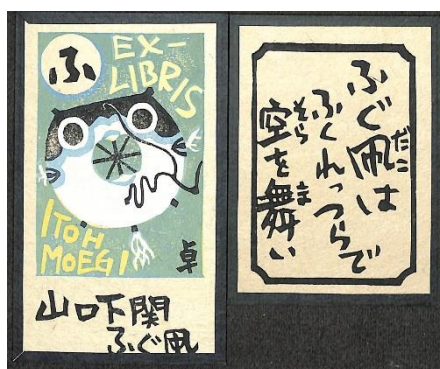 ふ
EX-
LIBRIS
ITOH
MOEGI
卓
山口下関
ふぐ凧
ふぐ凧は
だこ
ふくれっつらで
空を舞い
そら
ま